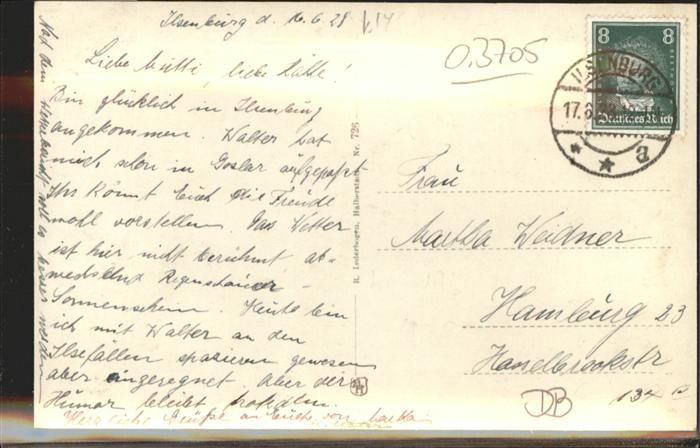 Ilsenburg d. 16.6.28
Liebe Mutti, liebe Kitte!
Bin glücklich in Ilsenburg
angekommen. Walter hat
mich schon in Goslar aufgepaßt
Ihr könnt Euch die Freude
wohl vorstellen. Das Wetter
ist hier nicht berühmt ab-
wechselnd Regenschauer -
Sonnenschein. Heute bin
ich mit Walter an den
Ilsefällen spazieren gewesen
aber eingeregnet. Aber der
Humor bleibt trotzdem.
Herzliche Grüße an Euch von Martha
Nach dem soll es besser werden
R. Lederbogen, Halberstadt. Nr. 726
0.3705
8 8
Deutsches Reich
ILSENBURG
17.6.28
* * a
Frau
Martha Weidner
Hamburg 23
Hasselbrookstr
134
DB